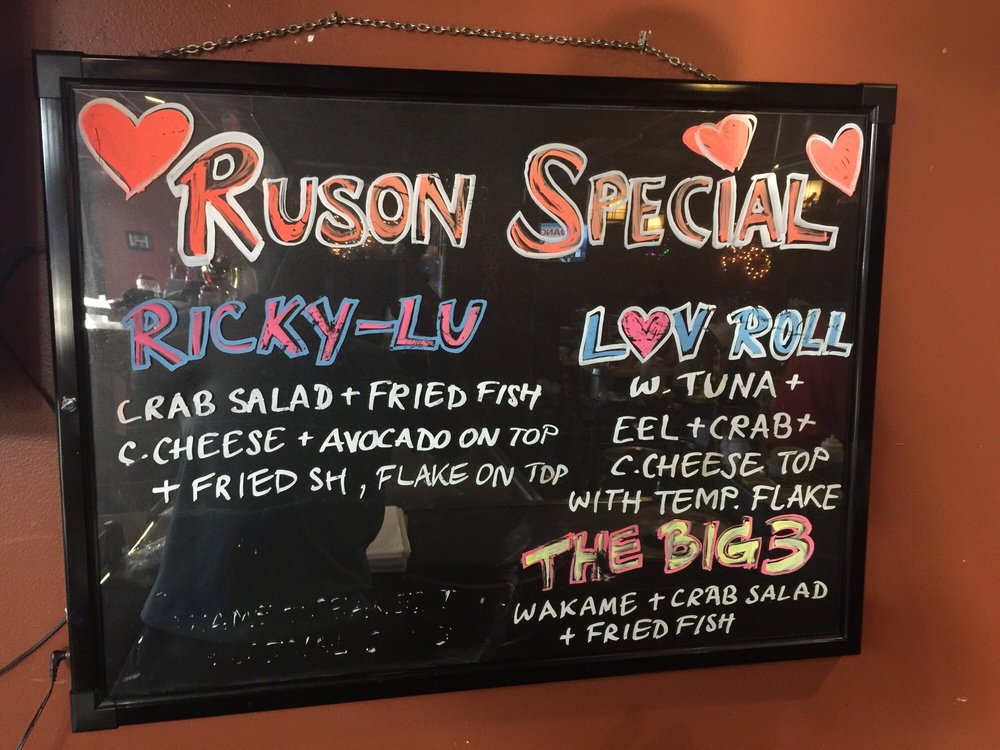 RUSON SPECIAL
RICKY-LU
CRAB SALAD + FRIED FISH
C. CHEESE + AVOCADO ON TOP
+ FRIED SH, FLAKE ON TOP
L♥V ROLL
W. TUNA +
EEL + CRAB +
C. CHEESE TOP
WITH TEMP. FLAKE
THE BIG 3
WAKAME + CRAB SALAD
+ FRIED FISH